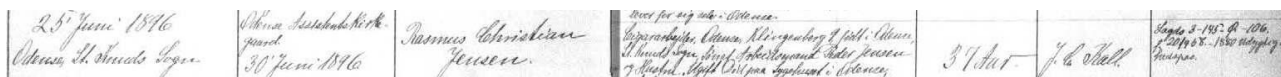 25' Juni 1896
Odense, St. Knuds Sogn
Odense Assistentskirke-
gaard.
30' Juni 1896
Rasmus Christian
Jensen.
lever for sig selv i Odense.
Cigararbejder, Odense, Klingenberg 9, født i Odense,
St. Knuds Sogn, Søn af Arbejdsmand Peder Jensen
og Hustru. Ugift. Død paa Sygehuset i Odense.
37 Aar.
J. C. Kall.